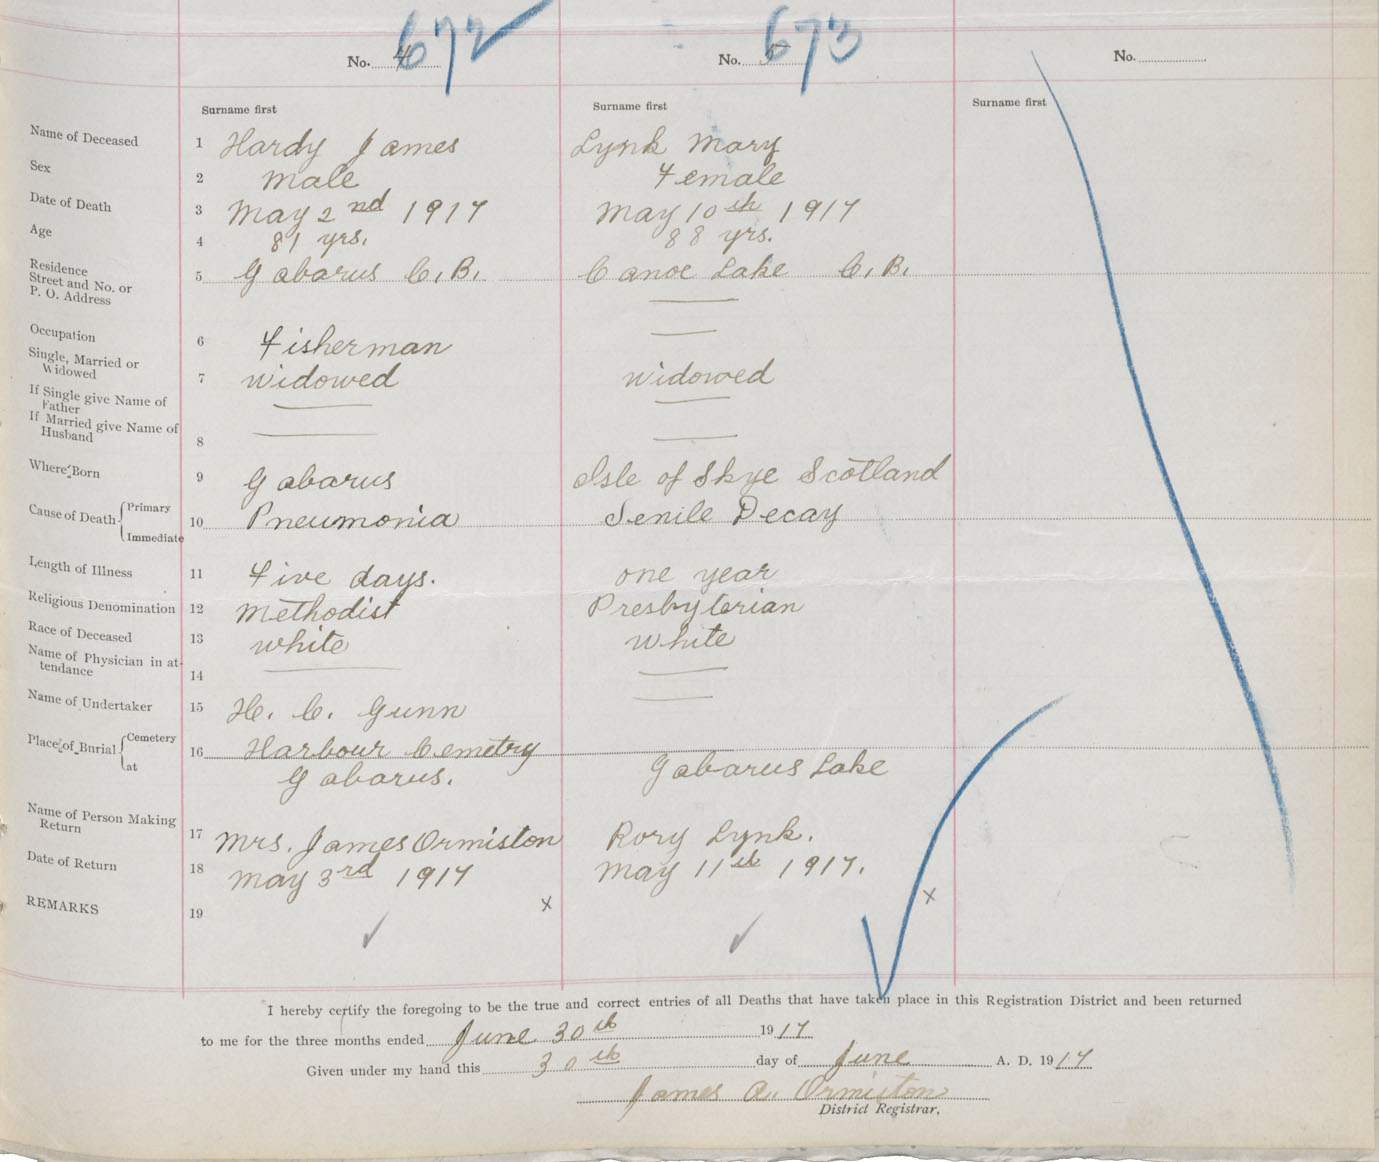 672 673
No. 4 No. 5 No.
Surname first Surname first Surname first
Name of Deceased 1 Hardy James Lynk Mary
Sex 2 Male Female
Date of Death 3 May 2nd 1917 May 10th 1917
Age 4 81 yrs. 88 yrs.
Residence
Street and No. or 5 Gabarus C.B. Canoe Lake C.B.
P. O. Address
Occupation 6 Fisherman
Single, Married or
Widowed 7 Widowed Widowed
If Single give Name of
Father
If Married give Name of
Husband 8
Where Born 9 Gabarus Isle of Skye Scotland
Cause of Death Primary 10 Pneumonia Senile Decay
Immediate
Length of Illness 11 Five days. one year
Religious Denomination 12 Methodist Presbyterian
Race of Deceased 13 White White
Name of Physician in at-
tendance 14
Name of Undertaker 15 H. C. Gunn
Place of Burial Cemetery 16 Harbour Cemetry
at Gabarus. Gabarus Lake
Name of Person Making
Return 17 Mrs. James Ormiston Rory Lynk.
Date of Return 18 May 3rd 1917 May 11th 1917.
REMARKS 19 x x
I hereby certify the foregoing to be the true and correct entries of all Deaths that have taken place in this Registration District and been returned
to me for the three months ended June 30th 1917
Given under my hand this 30th day of June A. D. 1917
James A. Ormiston
District Registrar.